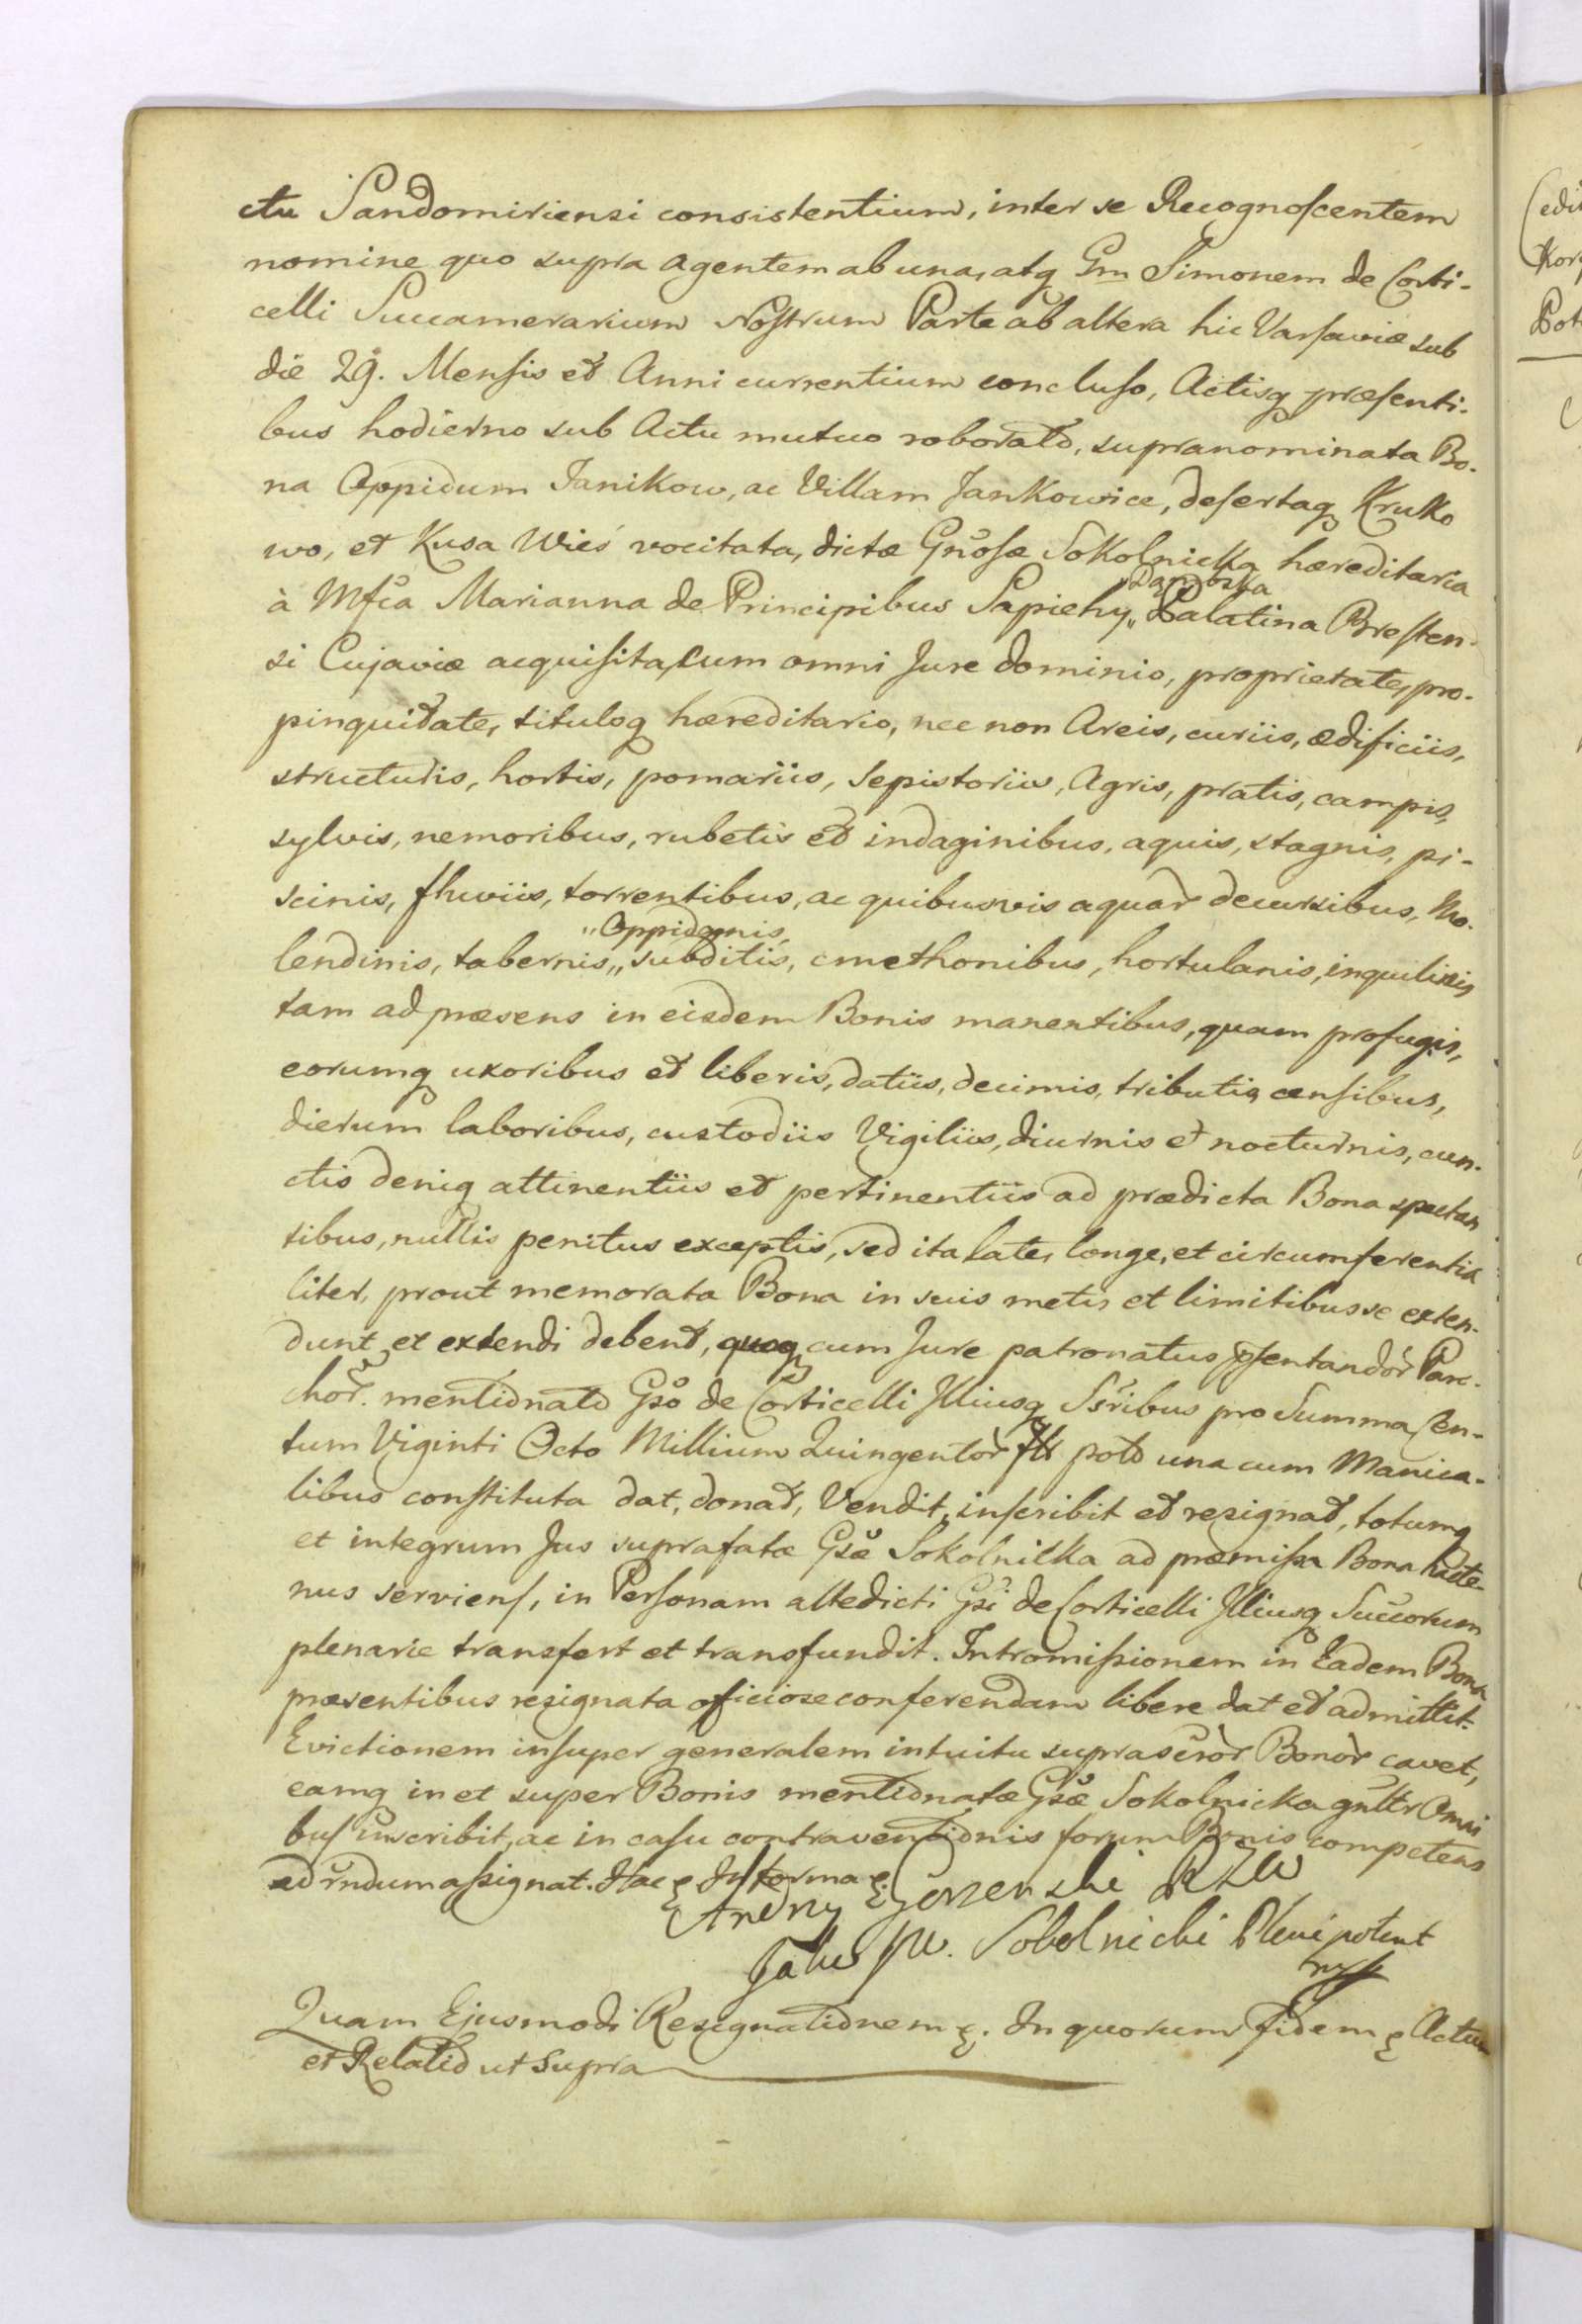 ctu Sandomiriensi consistentium, inter se Recognoscentem
nomine quo supra agentem ab una, atq Gm Simonem de Corti-
celli Succamerarium Nostrum Parte ab altera hic Varsaviæ sub
die 29. Mensis et Anni currentium concluso, Actisq præsenti-
bus hodierno sub Actu mutuo roborato, supranominata Bo-
na Oppidum Janikow, ac Villam Jankowice, desertaq Kruko
wo, et Kusa Wieś vocitata, dictæ Gnosæ Sokolnicka hæreditaria
à Mfca Marianna de Principibus Sapiehy „Dąmbska Palatina Bresten-
si Cujaviæ acquisita, cum omni Jure dominio, proprietate, pro-
pinquitate, tituloq hæreditario, nec non Areis, curiis, ædificiis,
structuris, hortis, pomariis, Sepistoriis, Agris, pratis, campis,
sylvis, nemoribus, rubetis et indaginibus, aquis, stagnis, pi-
scinis, fluviis, torrentibus, ac quibusvis aquar decursibus, Mo-
lendinis, tabernis, „Oppidanis, subditis, cmethonibus, hortulanis, inquilinis
tam ad præsens in eisdem Bonis manentibus, quam profugis,
eorumq uxoribus et liberis, datiis, decimis, tributis censibus,
dierum laboribus, custodiis Vigiliis, diurnis et nocturnis, cun-
ctis deniq attinentiis et pertinentiis ad prædicta Bona spectan
tibus, nullis penitus exceptis, sed ita late, longe, et circumferentia
liter, prout memorata Bona in suis metis et limitibus se exten-
dunt et extendi debent, cum Jure patronatus psentandor Paro-
chor. mentionato Gso de Corticelli Illiusq Ssribus pro Summa Cen-
tum Viginti Octo Millium Quingentor fll pol una cum Manica-
libus constituta dat, donat, Vendit, inscribit et resignat, totumq
et integrum Jus suprafatæ Gsæ Sokolnicka ad præmissa Bona hacte-
nus serviens, in Personam altedicti Gsi de Corticelli Illiusq Succorum
plenarie transfert et transfundit. Intromissionem in Eadem Bona
præsentibus resignata officiose conferendam libere dat et admittit.
Evictionem insuper generalem intuitu suprascror Bonor cavet,
eamq in et super Bonis mentionatæ Gsæ Sokolnicka gnltr Omni
bus inscribit, ac in casu contraventionis forum Bonis competens
ad rndum assignat. Hac In forma
Jakus Sokolnicki Plenipotent
Quam Ejusmodi Resignationem. In quorum fidem Actum
et Relatio ut Supra